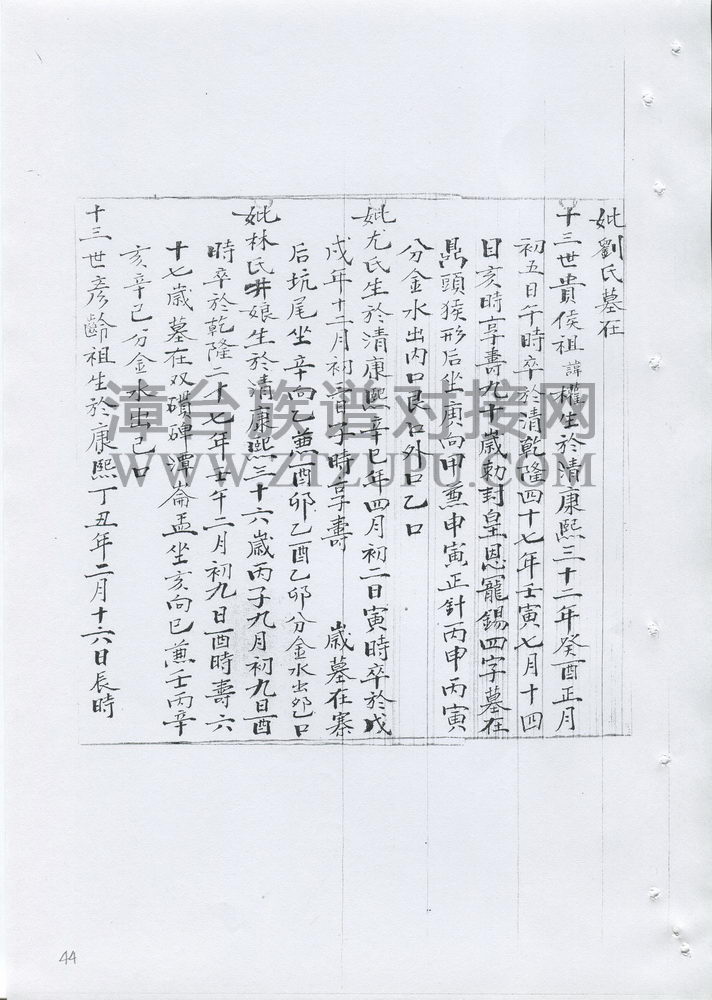 妣劉氏墓在
十三世貴侯祖諱權生於清康熙三十二年癸酉正月
初五日午時卒於清乾隆四十七年壬寅七月十四
日亥時享壽九十歲勅封皇恩寵錫四字墓在
頭猴形后坐庚向甲兼申寅正針丙申丙寅
分金水出内口艮口外口乙口
妣尤氏生於清康熙辛巳年四月初二日寅時卒於戊
戌年十二月初二日子時享壽 歲墓在寨
后坑尾坐辛向乙兼酉卯乙酉乙卯分金水出口
妣林氏井娘生於清康熙三十六歲丙子九月初九日酉
時卒於乾隆二十七年壬午二月初九日酉時壽六
十七歲墓在双碑潭崙盂坐亥向巳兼壬丙辛
亥辛巳分金水出己口
十三世彥齡祖生於康熙丁丑年二月十六日辰時
漳台族谱对接网
WWW.ZTZUPU.COM
44